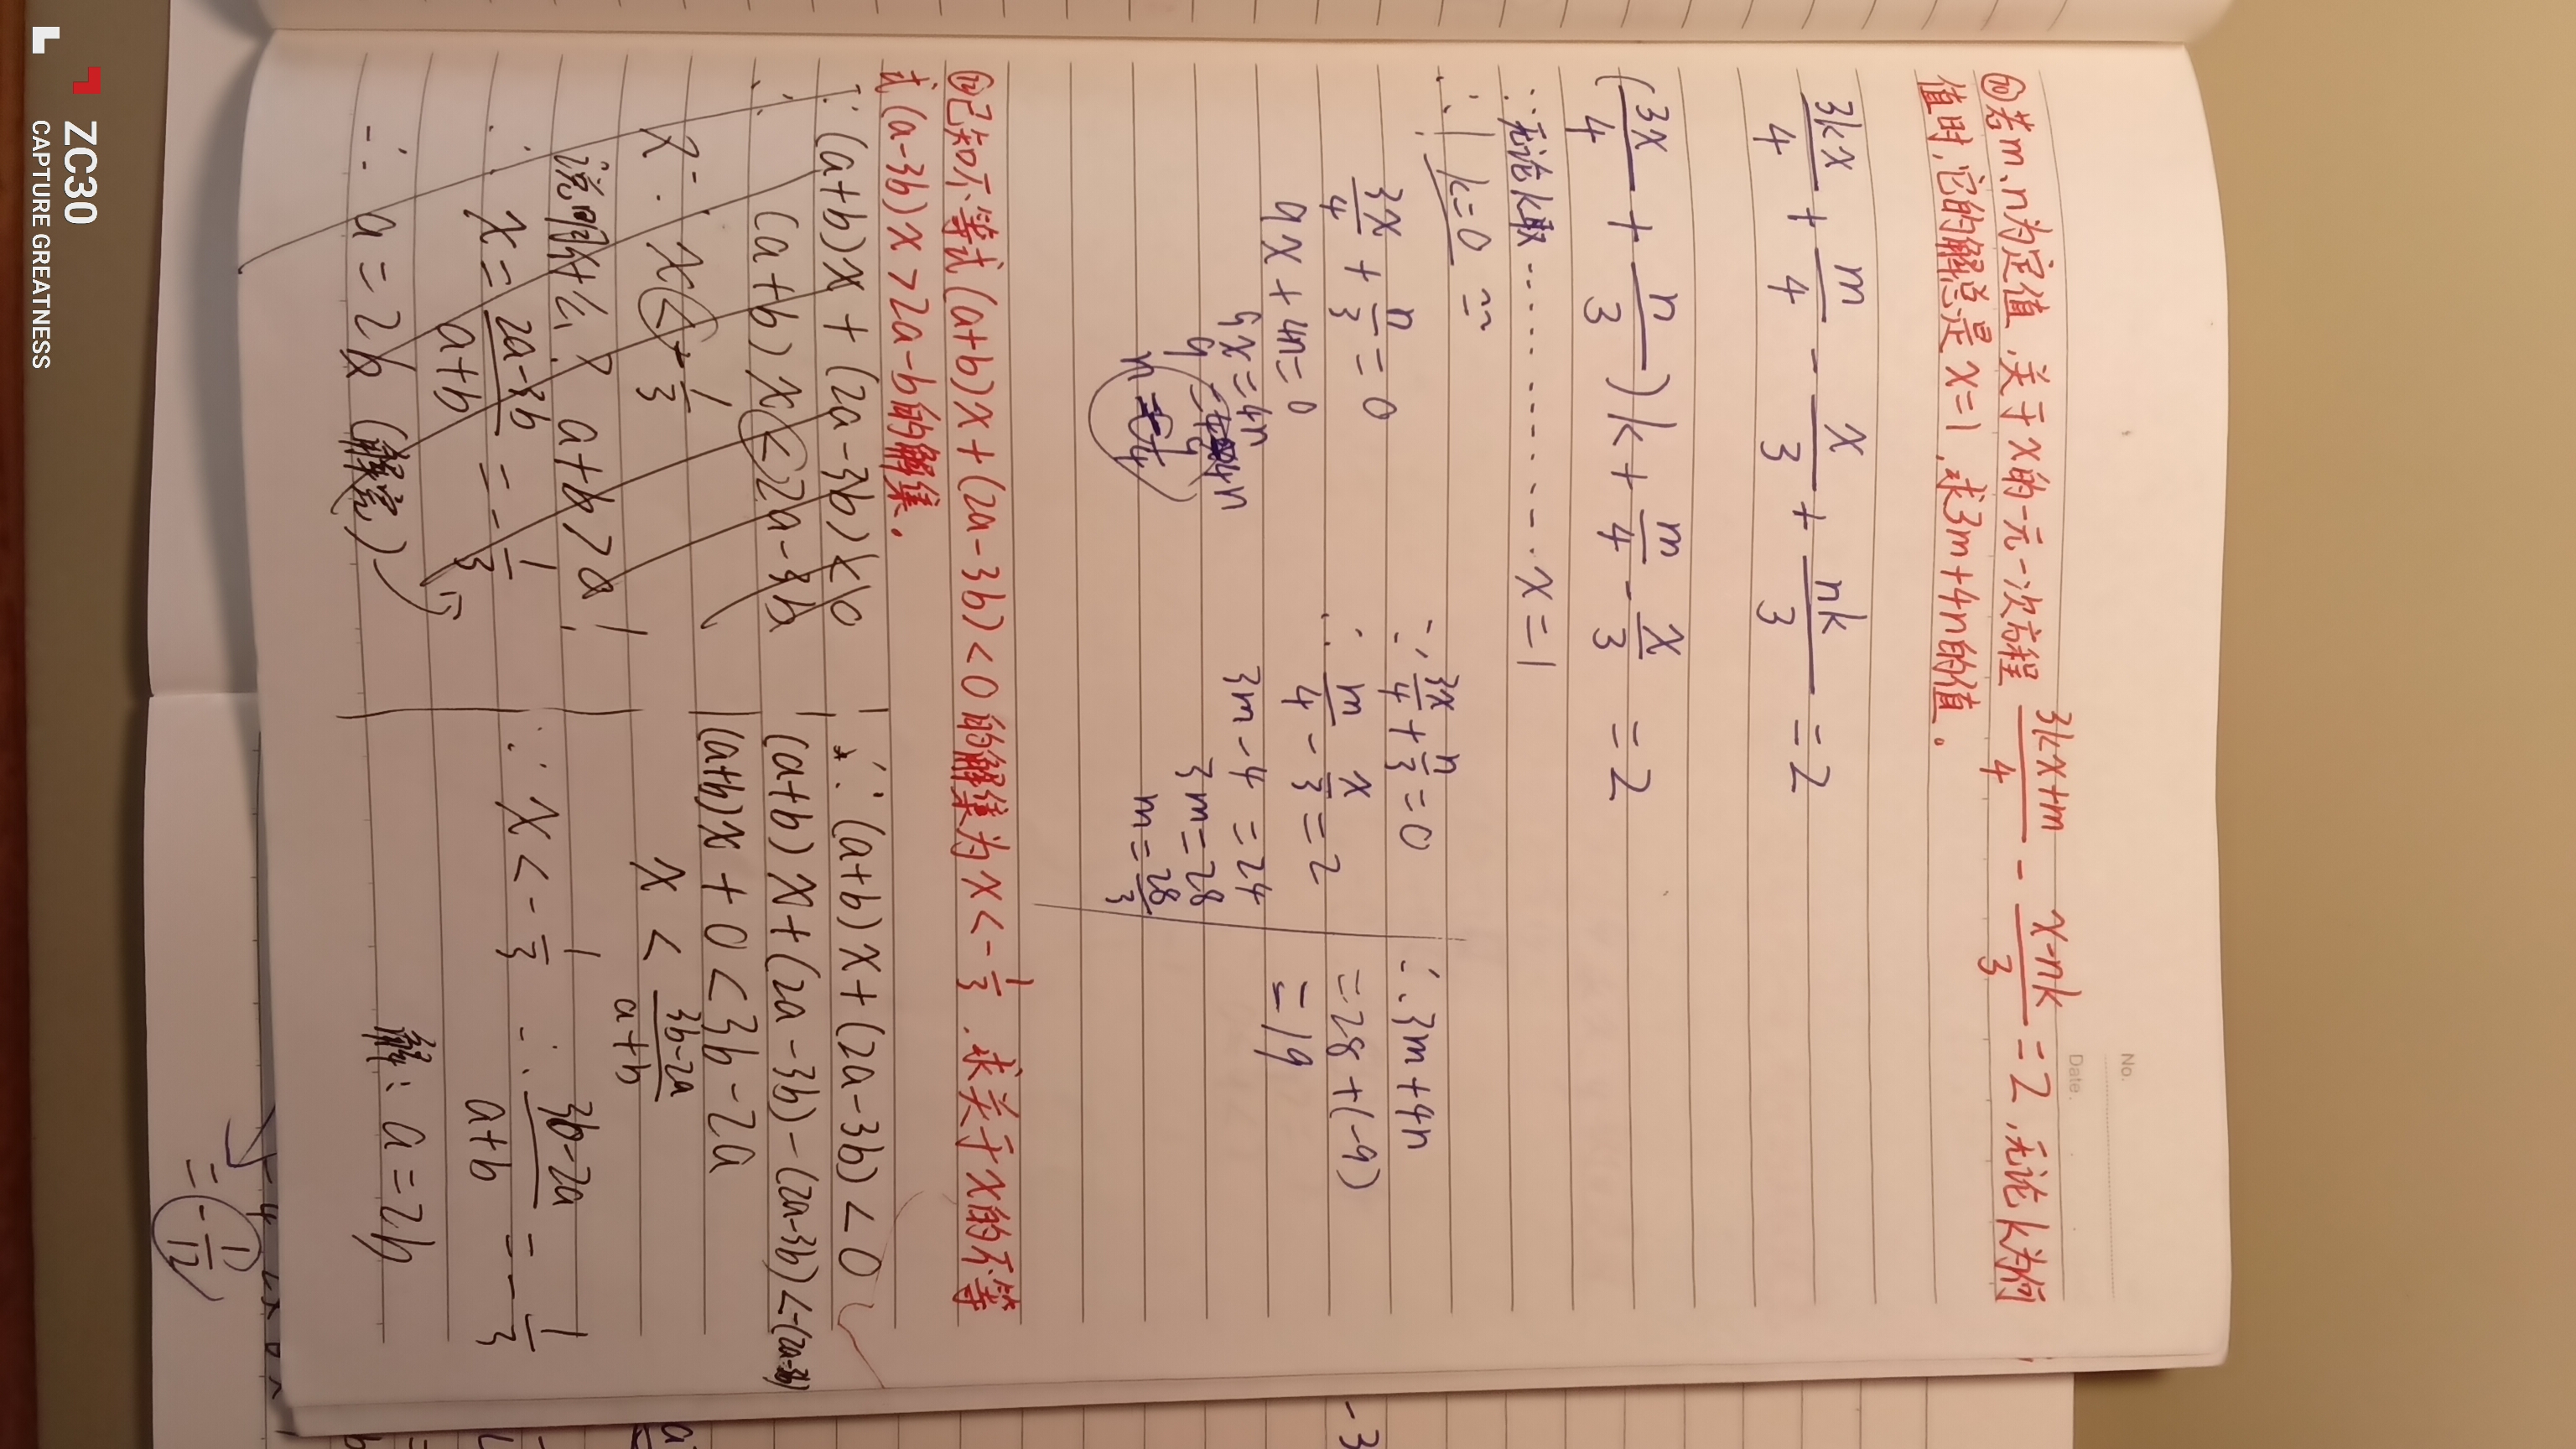 No.
Date.
⑩若m、n为定值,关于x的一元一次方程 (3kx+m)/4 - (x-nk)/3 = 2,无论k为何
值时,它的解总是x=1,求3m+4n的值。
3kx/4 + m/4 - x/3 + nk/3 = 2
(3x/4 + n/3)k + m/4 - x/3 = 2
∵无论k取……………x=1
∴ k=0
3x/4 + n/3 = 0
9x+4n=0
9x=4n
∵ 3x/4 + n/3 = 0
∴ m/4 - x/3 = 2
3m-4=24
3m=28
m=28/3
∴3m+4n
=28+(-9)
=19
已知不等式(a+b)x+(2a-3b)<0的解集为x<-1/3,求关于x的不等
式(a-3b)x>2a-b的解集.
∵(a+b)x+(2a-3b)<0
∴(a+b)x<2a-3b
x<-1/3
说明什么? a+b>0!
∴ x= (2a-3b)/(a+b) = -1/3
∴ a=2b
∵(a+b)x+(2a-3b)<0
(a+b)x+(2a-3b)-(2a-3b)<-(2a-3b)
(a+b)x+0<3b-2a
x< (3b-2a)/(a+b)
∵ x<-1/3 ∴ (3b-2a)/(a+b) = -1/3
解:a=2b
= -1/12
-3
ZC30
CAPTURE GREATNESS